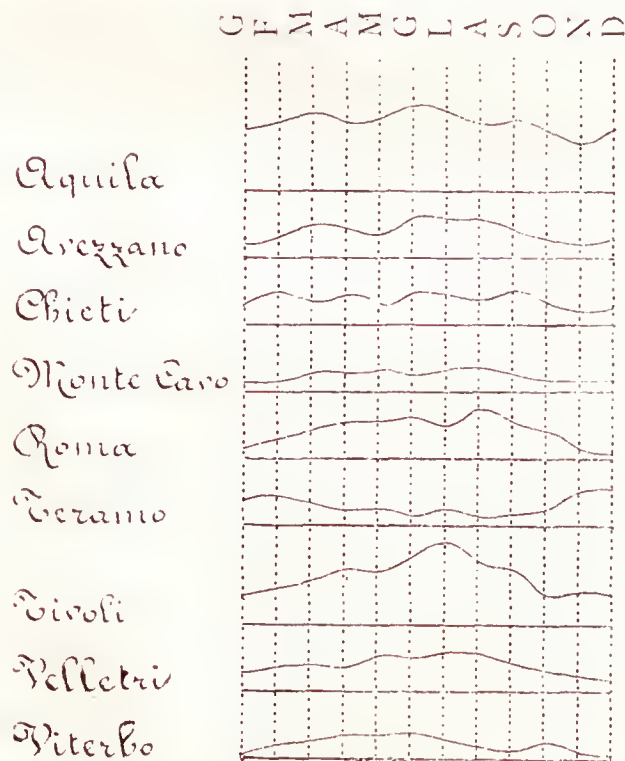 G F M A M G L A S O N D
Aquila
Avezzano
Chieti
Monte Cavo
Roma
Teramo
Tivoli
Velletri
Viterbo